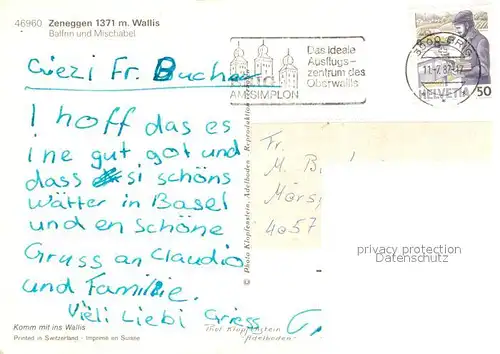 46960 Zeneggen 1371 m. Wallis
Balfrin und Mischabel
Grüezi Fr. Bucher
I hoff das es
ine gut got und
dass si schöns
wätter in Basel
und en schöne
Gruss an Claudio
und Familie.
Vieli Liebi Griess
Komm mit ins Wallis
Printed in Switzerland - Imprimé en Suisse
Thel Klopfenstein
Adelboden
© Photo Klopfenstein, Adelboden - Reproduktion
AM SIMPLON
Das ideale
Ausflugs-
zentrum des
Oberwallis
3900 BRIG
1
HELVETIA 50
Fr.
M. B
Mörs
4057
privacy protection
Datenschutz